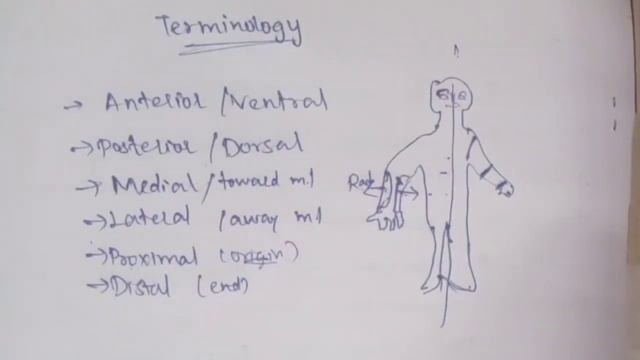 Terminology
→ Anterior / Ventral
→ Posterior / Dorsal
→ Medial / toward m.l
→ Lateral / away m.l
→ Proximal (origin)
→ Distal (end)